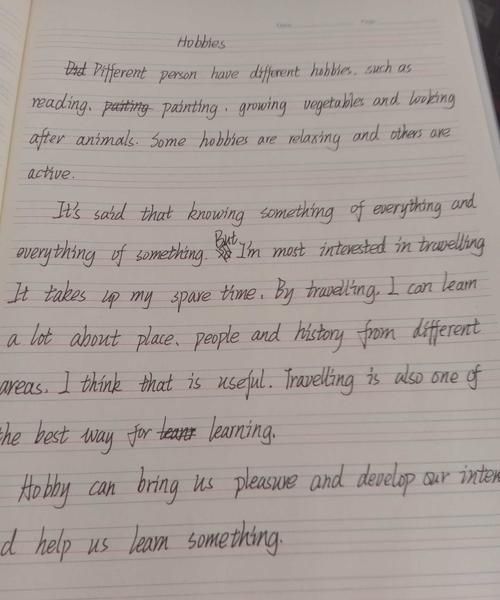 Hobbies
Different person have different hobbies, such as
reading, painting, growing vegetables and looking
after animals. Some hobbies are relaxing and others are
active.
It's said that knowing something of everything and
everything of something. But I'm most interested in travelling
It takes up my spare time. By travelling, I can learn
a lot about place, people and history from different
areas. I think that is useful. Travelling is also one of
the best way for learning.
Hobby can bring us pleasure and develop our inter
d help us learn something.